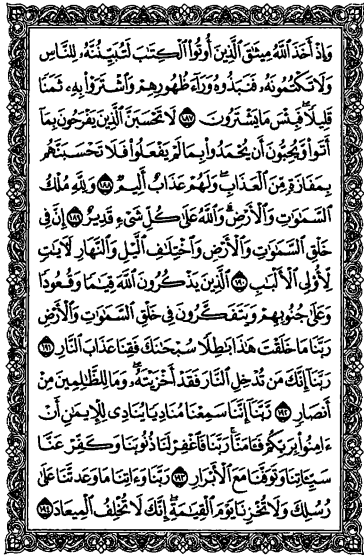 وَإِذْ أَخَذَ ٱللَّهُ مِيثَٰقَ ٱلَّذِينَ أُوتُوا۟ ٱلْكِتَٰبَ لَتُبَيِّنُنَّهُۥ لِلنَّاسِ
وَلَا تَكْتُمُونَهُۥ فَنَبَذُوهُ وَرَآءَ ظُهُورِهِمْ وَٱشْتَرَوْا۟ بِهِۦ ثَمَنًا
قَلِيلًا ۖ فَبِئْسَ مَا يَشْتَرُونَ ١٨٧ لَا تَحْسَبَنَّ ٱلَّذِينَ يَفْرَحُونَ بِمَآ
أَتَوا۟ وَّيُحِبُّونَ أَن يُحْمَدُوا۟ بِمَا لَمْ يَفْعَلُوا۟ فَلَا تَحْسَبَنَّهُم
بِمَفَازَةٍ مِّنَ ٱلْعَذَابِ ۖ وَلَهُمْ عَذَابٌ أَلِيمٌ ١٨٨ وَلِلَّهِ مُلْكُ
ٱلسَّمَٰوَٰتِ وَٱلْأَرْضِ ۗ وَٱللَّهُ عَلَىٰ كُلِّ شَىْءٍ قَدِيرٌ ١٨٩ إِنَّ فِى
خَلْقِ ٱلسَّمَٰوَٰتِ وَٱلْأَرْضِ وَٱخْتِلَٰفِ ٱلَّيْلِ وَٱلنَّهَارِ لَءَايَٰتٍ
لِّأُو۟لِى ٱلْأَلْبَٰبِ ١٩٠ ٱلَّذِينَ يَذْكُرُونَ ٱللَّهَ قِيَٰمًا وَقُعُودًا
وَعَلَىٰ جُنُوبِهِمْ وَيَتَفَكَّرُونَ فِى خَلْقِ ٱلسَّمَٰوَٰتِ وَٱلْأَرْضِ
رَبَّنَا مَا خَلَقْتَ هَٰذَا بَٰطِلًا سُبْحَٰنَكَ فَقِنَا عَذَابَ ٱلنَّارِ ١٩١
رَبَّنَآ إِنَّكَ مَن تُدْخِلِ ٱلنَّارَ فَقَدْ أَخْزَيْتَهُۥ ۖ وَمَا لِلظَّٰلِمِينَ مِنْ
أَنصَارٍ ١٩٢ رَّبَّنَآ إِنَّنَا سَمِعْنَا مُنَادِيًا يُنَادِى لِلْإِيمَٰنِ أَنْ
ءَامِنُوا۟ بِرَبِّكُمْ فَـَٔامَنَّا ۚ رَبَّنَا فَٱغْفِرْ لَنَا ذُنُوبَنَا وَكَفِّرْ عَنَّا
سَيِّـَٔاتِنَا وَتَوَفَّنَا مَعَ ٱلْأَبْرَارِ ١٩٣ رَبَّنَا وَءَاتِنَا مَا وَعَدتَّنَا عَلَىٰ
رُسُلِكَ وَلَا تُخْزِنَا يَوْمَ ٱلْقِيَٰمَةِ ۗ إِنَّكَ لَا تُخْلِفُ ٱلْمِيعَادَ ١٩٤